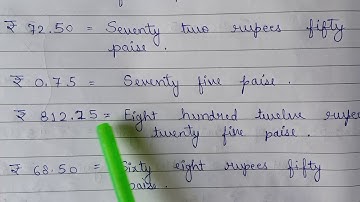 ₹ 72.50 = Seventy two rupees fifty
paise.
₹ 0.75 = Seventy five paise.
₹ 812.25 = Eight hundred twelve rupe
twenty five paise.
₹ 68.50 = Sixty eight rupees fifty
paise.